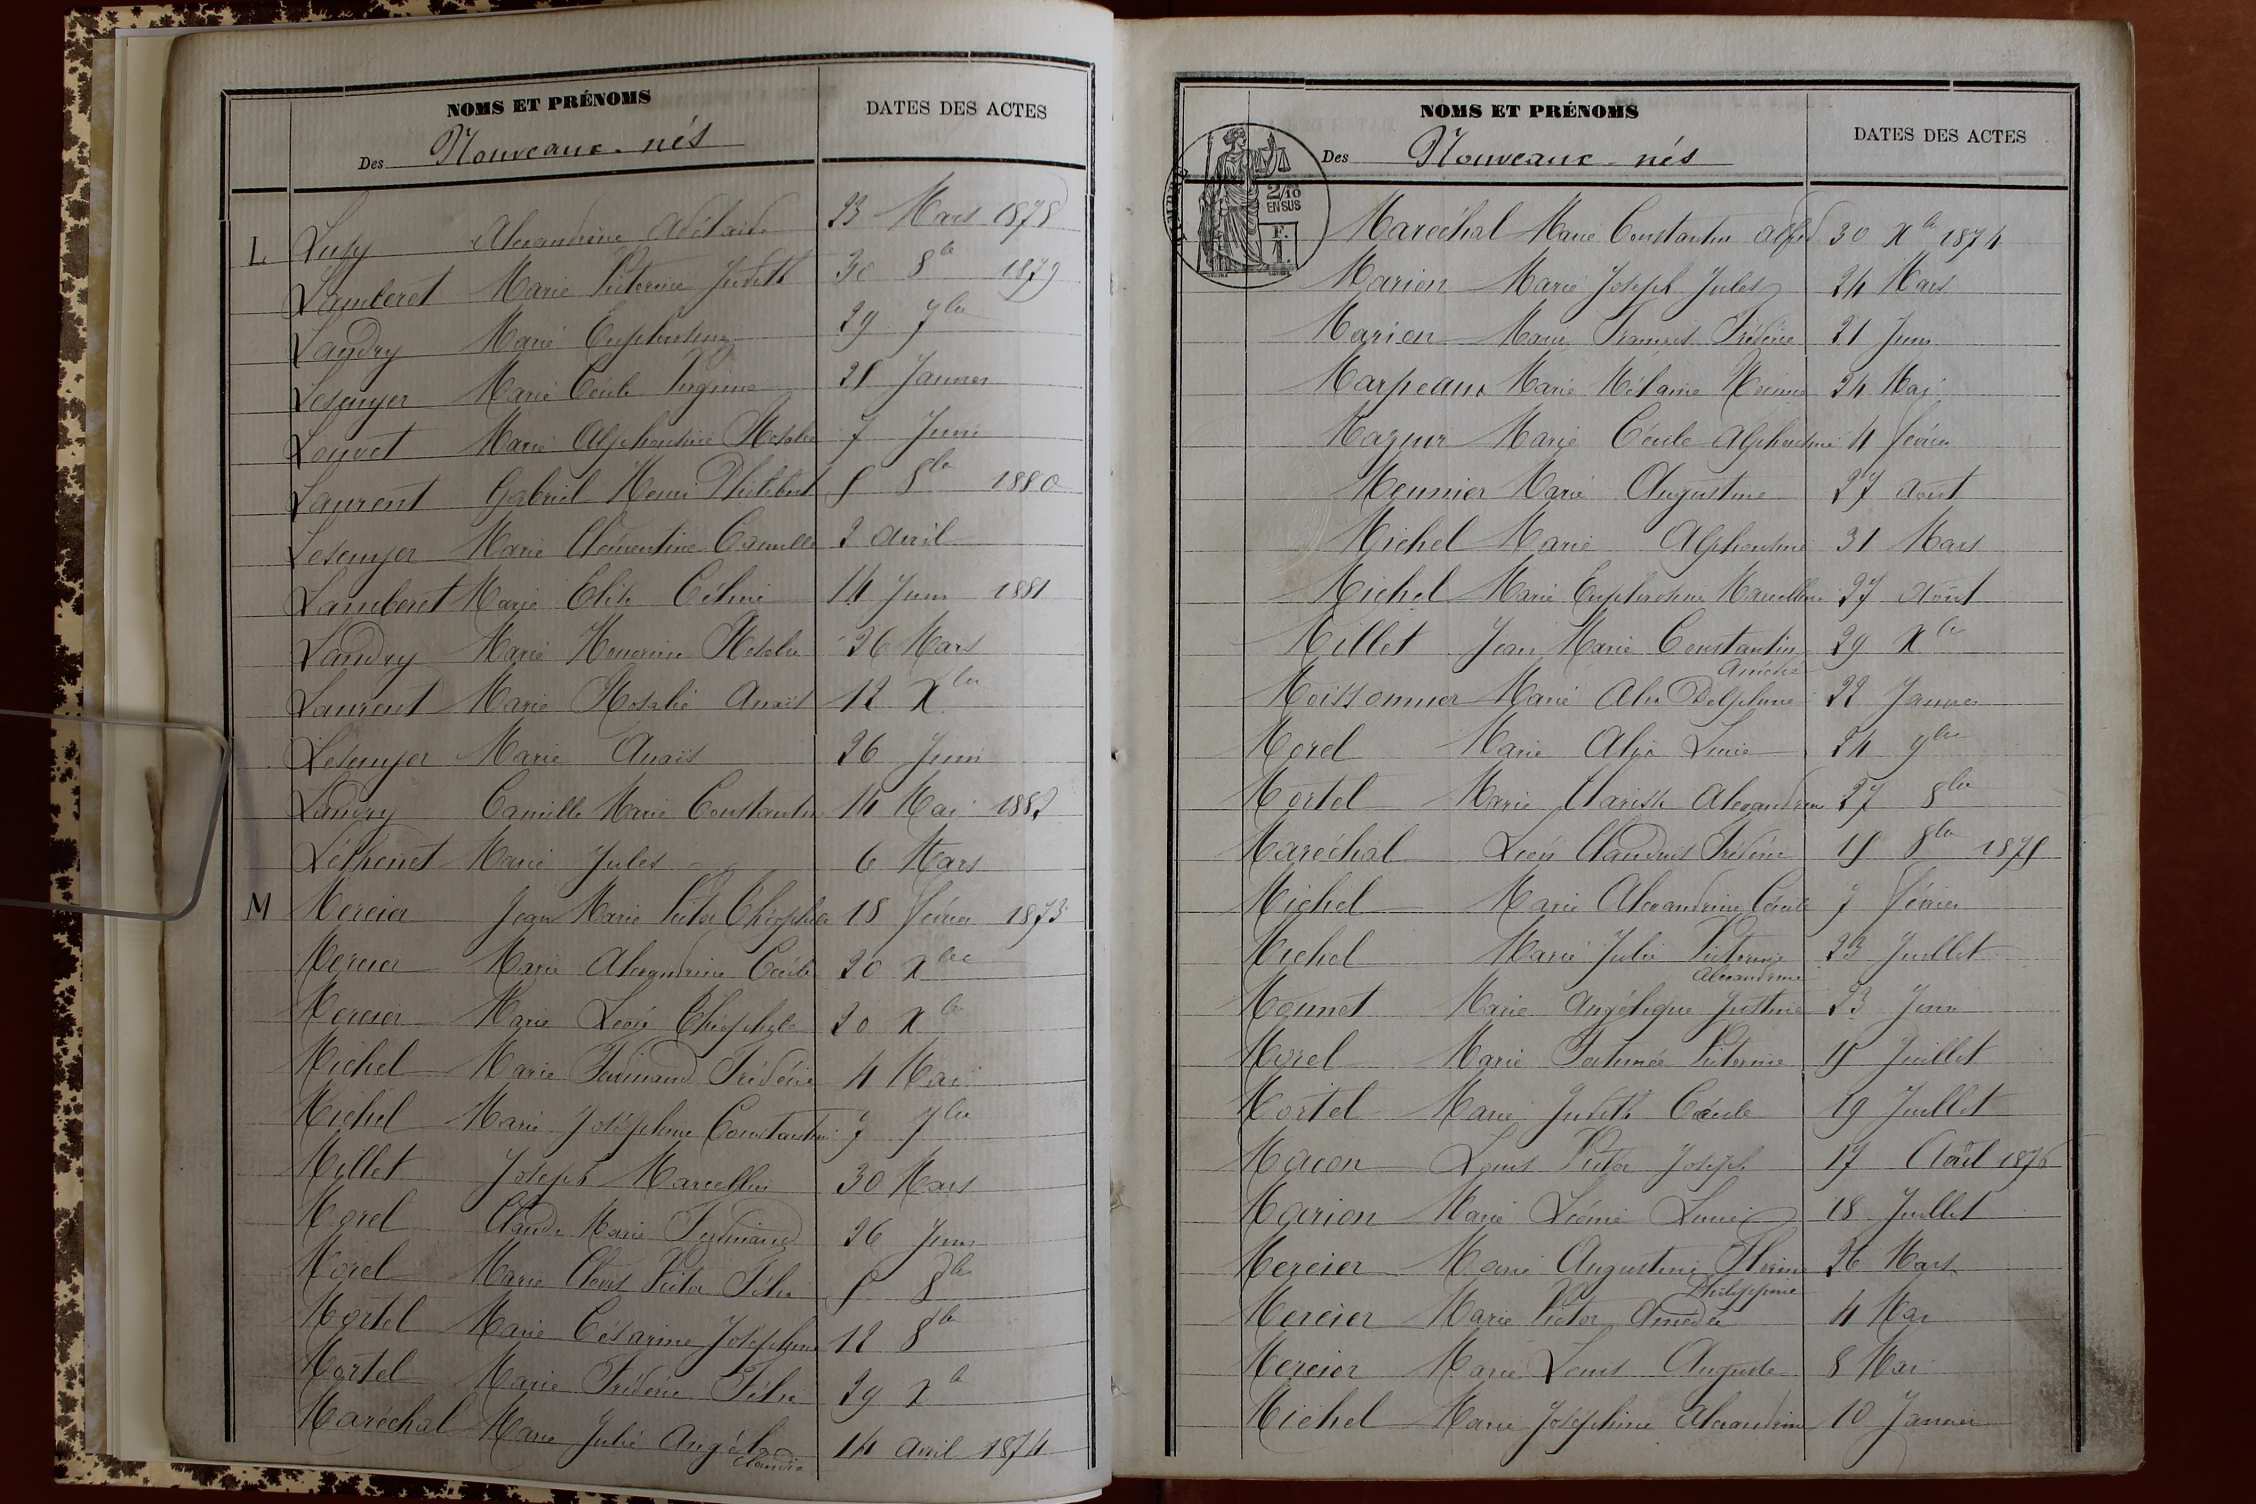 NOMS ET PRÉNOMS
DATES DES ACTES
Des Nouveaux-nés
L Lugy Alexandrine Adélaïde 23 Mars 1878
Lamberet Marie Victorine Judith 30 8bre 1879
Landry Marie Euphrosine 29 7bre
Lesenyer Marie Cécile Virginie 28 Janvier
Louvet Marie Alphonsine Rosalie 7 Juin
Laurent Gabriel Henri Philibert 8 8bre 1880
Lesenyer Marie Clémentine Camille 2 avril
Lamberet Marie Elise Céline 14 Juin 1881
Landry Marie Honorine Rosalie 26 Mars
Laurent Marie Rosalie Anaïs 12 Xbre
Lesenyer Marie Anaïs 26 Juin
Landry Camille Marie Constantin 14 Mai 1882
Léthenet Marie Jules 6 Mars
M Mercier Jean Marie Victor Théophile 18 février 1873
Mercier Marie Alexandrine Cécile 20 Xbre
Mercier Marie Léon Théophyle 20 Xbre
Michel Marie Ferdinand Frédéric 4 Mai
Michel Marie Joséphine Constantine 7 7bre
Millet Joseph Marcellin 30 Mars
Morel Claude Marie Ferdinand 26 Juin
Morel Marie Clovis Victor Félix 8 8bre
Mortel Marie Césarine Joséphine 12 8bre
Mortel Marie Frédéric Félix 29 Xbre
Maréchal Marie Julie Angéla 14 avril 1874
Claudia
NOMS ET PRÉNOMS
DATES DES ACTES
Des Nouveaux-nés
2/10
EN SUS
F.
1.
Maréchal Marie Constantin Alfred 30 Xbre 1874
Marion Marie Joseph Jules 24 Mars
Marion Marie François Frédéric 21 Juin
Marpeaux Marie Mélanie Noémie 24 Mai
Mazuir Marie Cécile Alphonsine 4 février
Meunier Marie Augustine 27 Août
Michel Marie Alphonsine 31 Mars
Michel Marie Euphrosine Marcelline 27 Août
Millet Jean Marie Constantin 29 Xbre
Aimée
Moissonnier Marie Alix Delphine 22 Janvier
Morel Marie Alix Lucie 24 9bre
Mortel Marie Clarisse Alexandrine 27 8bre
Maréchal Léon Claudius Frédéric 18 8bre 1875
Michel Marie Alexandrine Cécile 7 février
Michel Marie Julie Victorine 23 Juillet
Alexandrine
Monnet Marie Angélique Justine 23 Juin
Morel Marie Fortunée Victorine 15 Juillet
Mortel Marie Judith Cécile 19 Juillet
Macon Louis Victor Joseph 17 Août 1876
Marion Marie Léonie Lucie 18 Juillet
Mercier Marie Augustine Florine 26 Mars
Philippine
Mercier Marie Victor Amédée 4 Mai
Mercier Marie Louis Auguste 8 Mai
Michel Marie Joséphine Alexandrine 10 Janvier